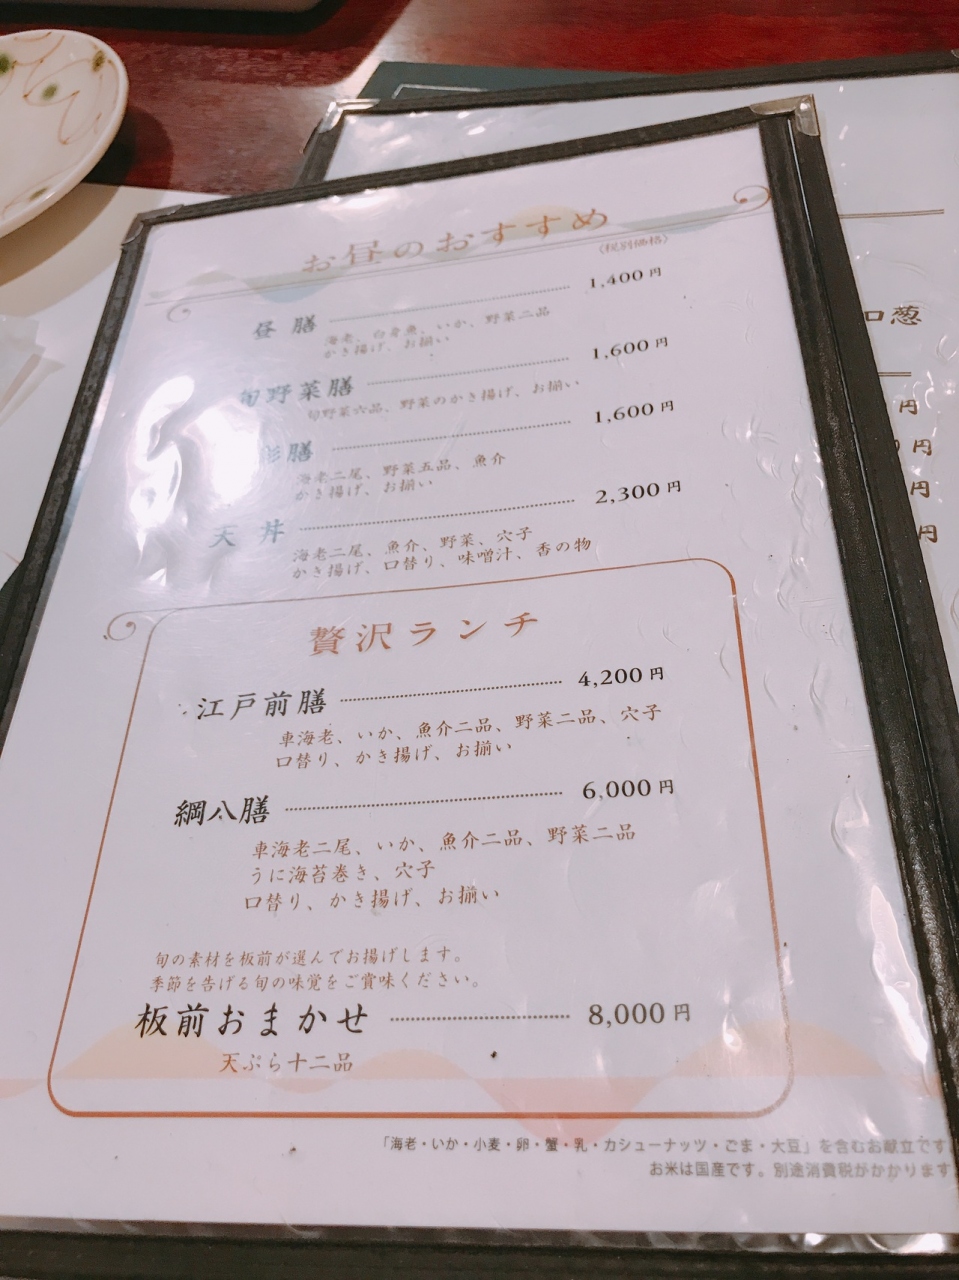 お昼のおすすめ
〈税別価格〉
昼膳 1,400円
海老、白身魚、いか、野菜二品
かき揚げ、お揃い
旬野菜膳 1,600円
旬野菜六品、野菜のかき揚げ、お揃い
膳 1,600円
海老二尾、野菜五品、魚介
かき揚げ、お揃い
天丼 2,300円
海老二尾、魚介、野菜、穴子
かき揚げ、口替り、味噌汁、香の物
贅沢ランチ
江戸前膳 4,200円
車海老、いか、魚介二品、野菜二品、穴子
口替り、かき揚げ、お揃い
綱八膳 6,000円
車海老二尾、いか、魚介二品、野菜二品
うに海苔巻き、穴子
口替り、かき揚げ、お揃い
旬の素材を板前が選んでお揚げします。
季節を告げる旬の味覚をご賞味ください。
板前おまかせ 8,000円
天ぷら十二品
「海老・いか・小麦・卵・蟹・乳・カシューナッツ・ごま・大豆」を含むお献立です
お米は国産です。別途消費税がかかります
葱
円
円
円
円